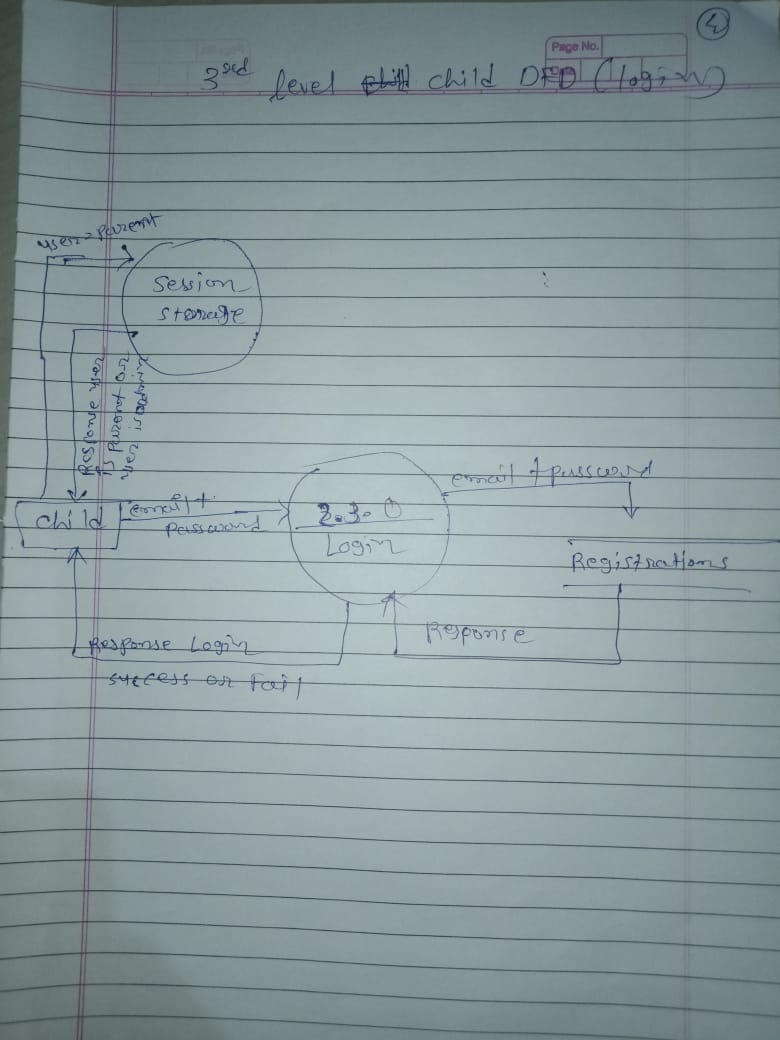 4
Page No.
3rd level child child DFD (login)
user=parent
session
storage
Response user
is parent or
user is admin
child
email +
password
2.3.0
Login
email + password
Registrations
Response
Response Login
success or fail